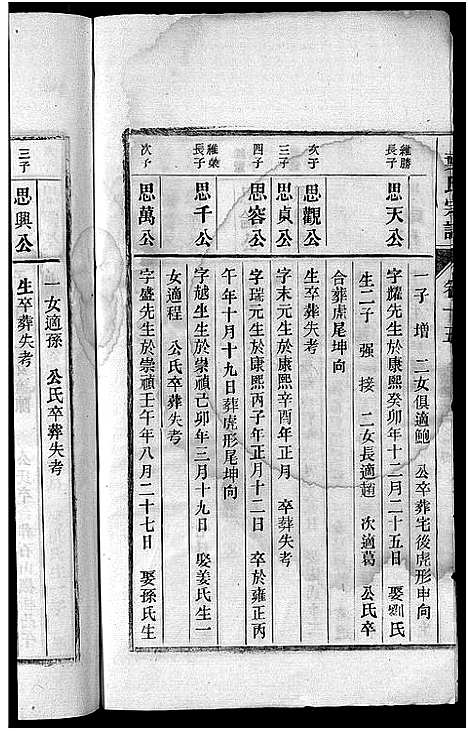 氏宗譜
卷十五
一子 增 二女俱適鮑 公卒葬宅後虎形申向
維勝長子 思天公 字耀先生於康熙癸卯年十二月二十五日 娶劉氏
生二子 强 接 二女長適趙 次適葛 公氏卒
合葬虎尾坤向
次子 思觀公 生卒葬失考
三子 思貞公 字末元生於康熙辛酉年正月 卒葬失考
四子 思容公 字瑞元生於康熙丙子年正月十二日 卒於雍正丙
午年十月十九日葬虎形尾坤向
維榮長子 思千公 字越生生於崇禎己卯年三月十九日 娶姜氏生一
女適程 公氏卒葬失考
次子 思萬公 字盛先生於崇禎壬午年八月二十七日 娶孫氏生
一女適孫 公氏卒葬失考
三子 思興公 生卒葬失考